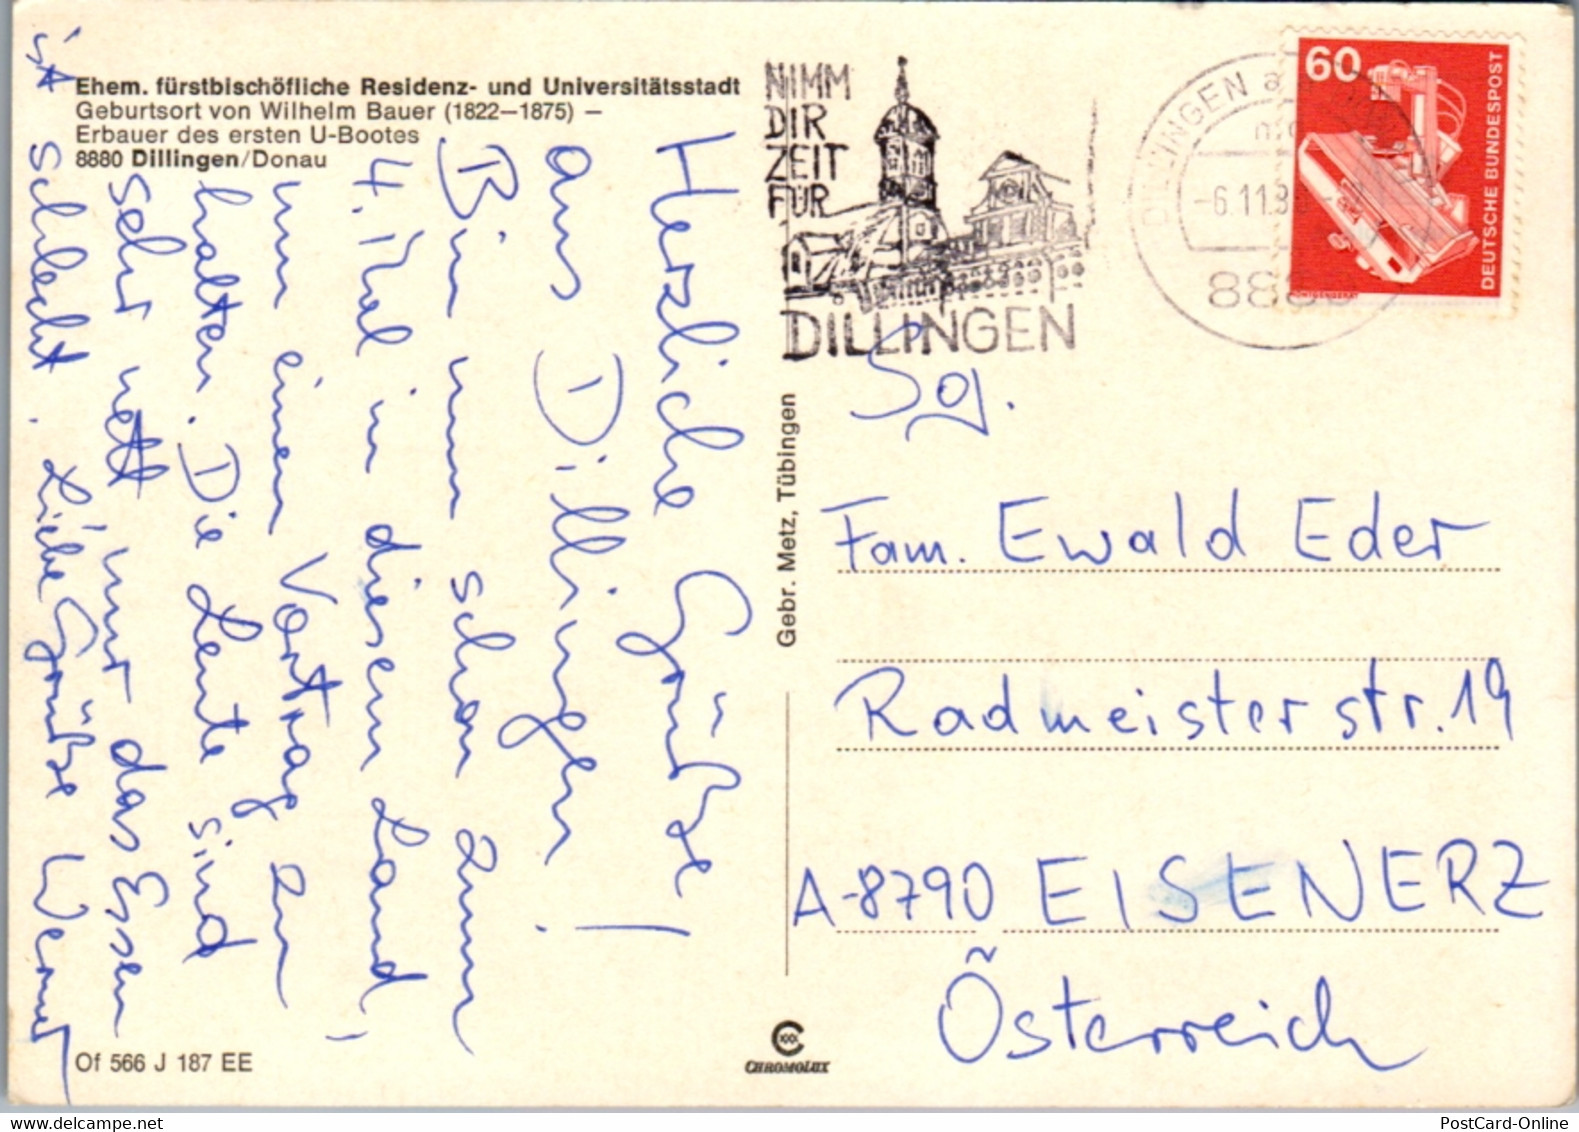 Ehem. fürstbischöfliche Residenz- und Universitätsstadt
Geburtsort von Wilhelm Bauer (1822—1875) —
Erbauer des ersten U-Bootes
8880 Dillingen/Donau
Herzliche Grüße
aus Dillingen!
Bin nun schon zum
4. Mal in diesem Land,
um einen Vortrag zu
halten. Die Leute sind
sehr nett, nur das Essen
ist schlecht. Liebe Grüße Werner
Of 566 J 187 EE
Gebr. Metz, Tübingen
CHROMOLUX
NIMM
DIR
ZEIT
FÜR
DILLINGEN
DILLINGEN a
-6.11.8
888
60
DEUTSCHE BUNDESPOST
RÖNTGENGERÄT
Fam. Ewald Eder
Radmeisterstr. 19
A-8790 EISENERZ
Österreich
PostCard-Online
PostCard-Online.com